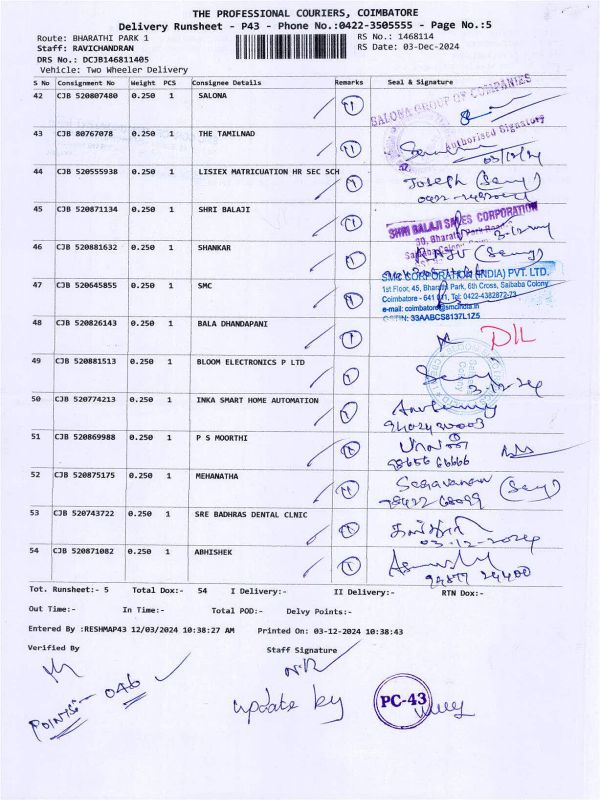 THE PROFESSIONAL COURIERS, COIMBATORE
Delivery Runsheet - P43 - Phone No.:0422-3505555 - Page No.:5
Route: BHARATHI PARK 1
RS No.: 1468114
Staff: RAVICHANDRAN
RS Date: 03-Dec-2024
DRS No.: DCJB146811405
Vehicle: Two Wheeler Delivery
S No Consignment No Weight PCS Consignee Details Remarks Seal & Signature
42 CJB 520807480 0.250 1 SALONA
SALONA GROUP OF COMPANIES
Authorised Signatory
43 CJB 80767078 0.250 1 THE TAMILNAD
03/12/24
44 CJB 520555938 0.250 1 LISIEX MATRICUATION HR SEC SCH
Joseph
45 CJB 520871134 0.250 1 SHRI BALAJI
SHRI BALAJI SALES CORPORATION
30, Bharathi Park Road
46 CJB 520881632 0.250 1 SHANKAR
RAJU
47 CJB 520645855 0.250 1 SMC
SMC CORPORATION (INDIA) PVT. LTD.
1st Floor, 45, Bharathi Park, 6th Cross, Saibaba Colony
Coimbatore - 641 011, Tel: 0422-4382872-73
e-mail: coimbatore@smcindia.in
GSTIN: 33AABCS8137L1Z5
48 CJB 520826143 0.250 1 BALA DHANDAPANI
D/L
49 CJB 520881513 0.250 1 BLOOM ELECTRONICS P LTD
3-12-24
50 CJB 520774213 0.250 1 INKA SMART HOME AUTOMATION
51 CJB 520869988 0.250 1 P S MOORTHI
98656 66666
52 CJB 520875175 0.250 1 MEHANATHA
Saravanan
98422 68099
53 CJB 520743722 0.250 1 SRE BADHRAS DENTAL CLNIC
03-12-2024
54 CJB 520871082 0.250 1 ABHISHEK
Tot. Runsheet:- 5 Total Dox:- 54 I Delivery:- II Delivery:- RTN Dox:-
Out Time:- In Time:- Total POD:- Delvy Points:-
Entered By :RESHMAP43 12/03/2024 10:38:27 AM Printed On: 03-12-2024 10:38:43
Verified By Staff Signature
N.R
POINTS - 046
update by
PC-43